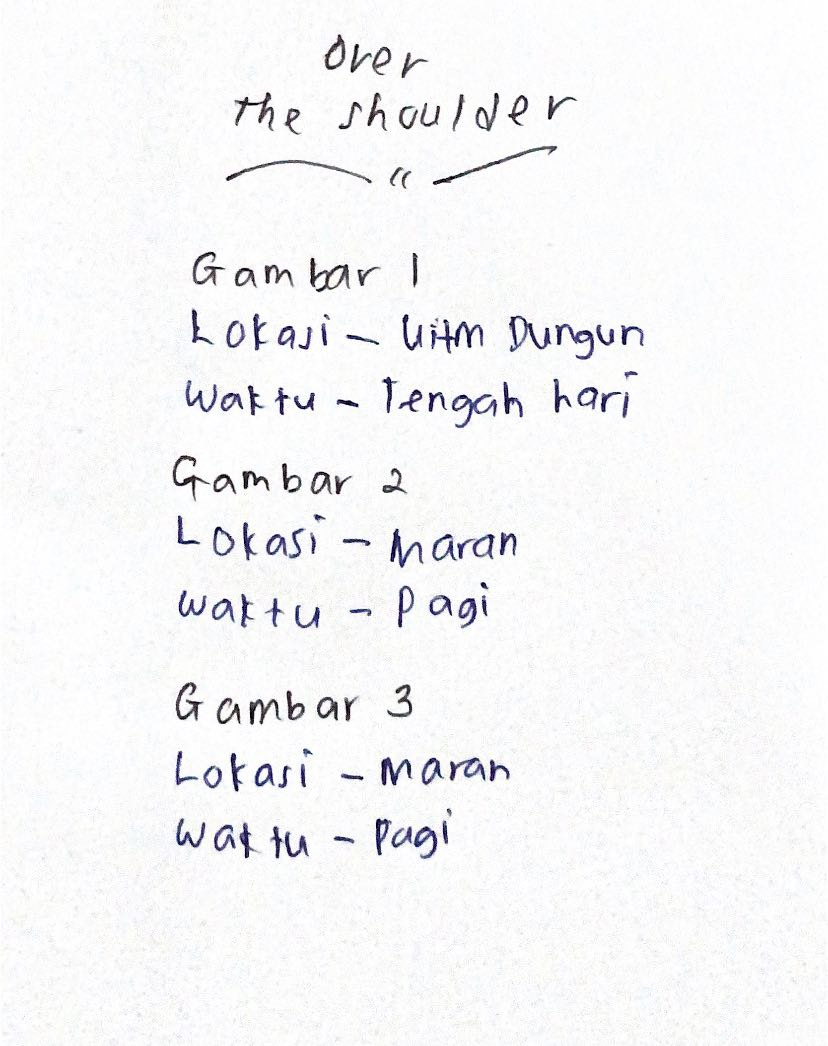 Over
the shoulder
Gambar 1
Lokasi - Uitm Dungun
Waktu - Tengah hari
Gambar 2
Lokasi - Maran
Waktu - Pagi
Gambar 3
Lokasi - Maran
Waktu - Pagi